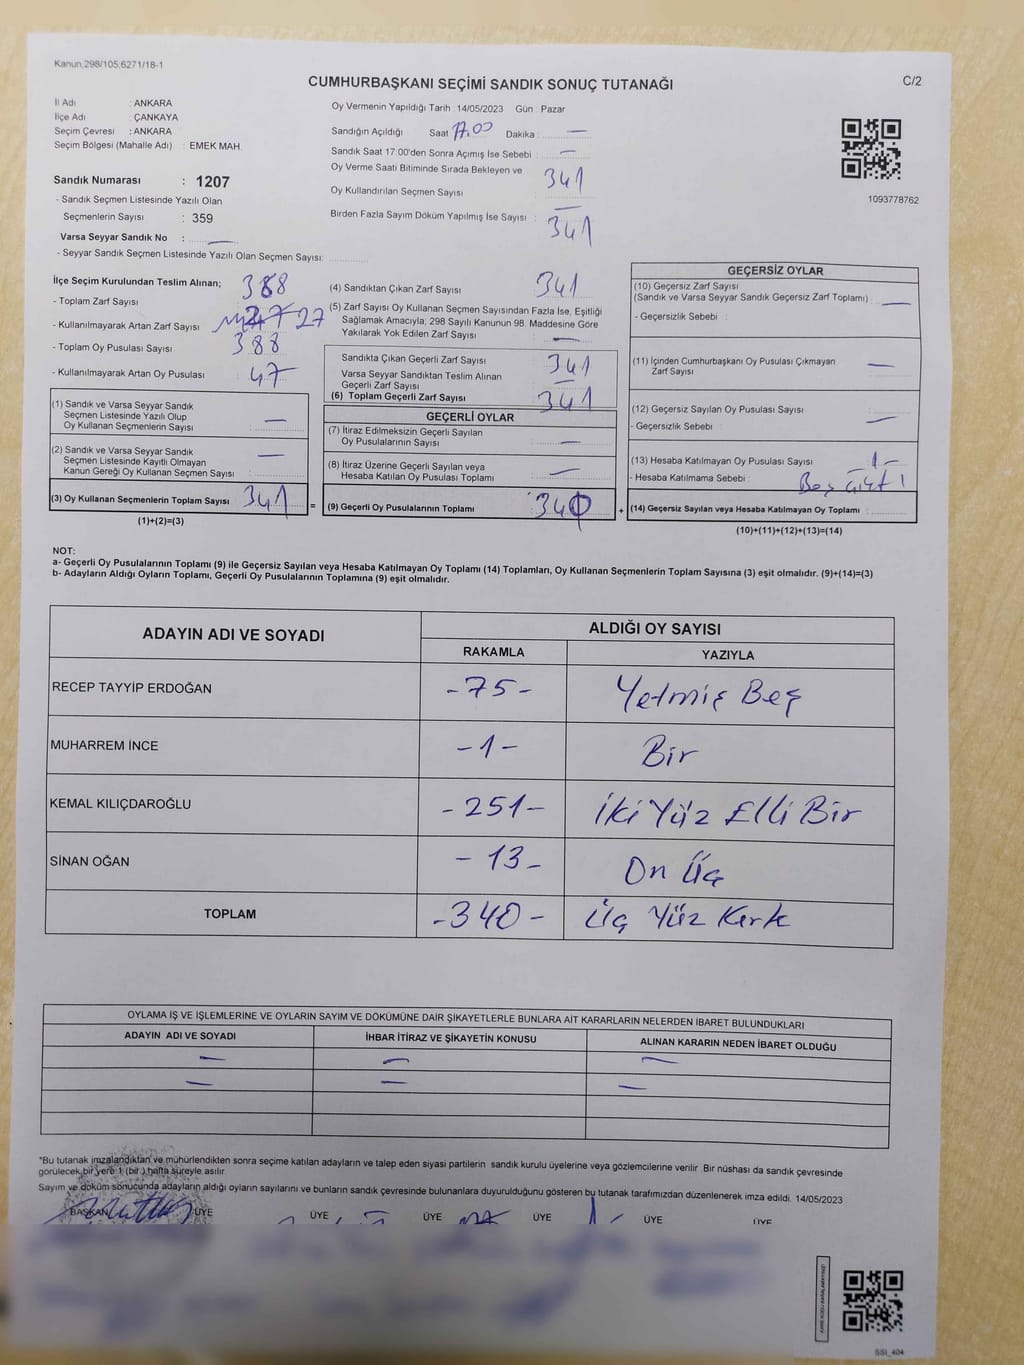 Kanun;298/105;6271/18-1
CUMHURBAŞKANI SEÇİMİ SANDIK SONUÇ TUTANAĞI
C/2
İl Adı : ANKARA
İlçe Adı : ÇANKAYA
Seçim Çevresi : ANKARA
Seçim Bölgesi (Mahalle Adı) : EMEK MAH.
Oy Vermenin Yapıldığı Tarih :14/05/2023 Gün : Pazar
Sandığın Açıldığı Saat 17.00 Dakika : —
Sandık Saat 17:00'den Sonra Açımış İse Sebebi : —
Oy Verme Saati Bitiminde Sırada Bekleyen ve
Oy Kullandırılan Seçmen Sayısı 341
Birden Fazla Sayım Döküm Yapılmış İse Sayısı : —
341
1093778762
Sandık Numarası : 1207
- Sandık Seçmen Listesinde Yazılı Olan
Seçmenlerin Sayısı : 359
Varsa Seyyar Sandık No : —
- Seyyar Sandık Seçmen Listesinde Yazılı Olan Seçmen Sayısı:
İlçe Seçim Kurulundan Teslim Alınan;
- Toplam Zarf Sayısı 388
- Kullanılmayarak Artan Zarf Sayısı 27
- Toplam Oy Pusulası Sayısı 388
- Kullanılmayarak Artan Oy Pusulası 47
(1) Sandık ve Varsa Seyyar Sandık
Seçmen Listesinde Yazılı Olup
Oy Kullanan Seçmenlerin Sayısı —
(2) Sandık ve Varsa Seyyar Sandık
Seçmen Listesinde Kayıtlı Olmayan
Kanun Gereği Oy Kullanan Seçmen Sayısı —
(3) Oy Kullanan Seçmenlerin Toplam Sayısı 341
(1)+(2)=(3)
(4) Sandıktan Çıkan Zarf Sayısı 341
(5) Zarf Sayısı Oy Kullanan Seçmen Sayısından Fazla İse, Eşitliği
Sağlamak Amacıyla; 298 Sayılı Kanunun 98. Maddesine Göre
Yakılarak Yok Edilen Zarf Sayısı —
Sandıkta Çıkan Geçerli Zarf Sayısı 341
Varsa Seyyar Sandıktan Teslim Alınan
Geçerli Zarf Sayısı —
(6) Toplam Geçerli Zarf Sayısı 341
GEÇERLİ OYLAR
(7) İtiraz Edilmeksizin Geçerli Sayılan
Oy Pusulalarının Sayısı —
(8) İtiraz Üzerine Geçerli Sayılan veya
Hesaba Katılan Oy Pusulası Toplamı —
= (9) Geçerli Oy Pusulalarının Toplamı 340
GEÇERSİZ OYLAR
(10) Geçersiz Zarf Sayısı
(Sandık ve Varsa Seyyar Sandık Geçersiz Zarf Toplamı) —
- Geçersizlik Sebebi :
(11) İçinden Cumhurbaşkanı Oy Pusulası Çıkmayan
Zarf Sayısı —
(12) Geçersiz Sayılan Oy Pusulası Sayısı
- Geçersizlik Sebebi : —
(13) Hesaba Katılmayan Oy Pusulası Sayısı -1-
- Hesaba Katılmama Sebebi : Boş
+ (14) Geçersiz Sayılan veya Hesaba Katılmayan Oy Toplamı
(10)+(11)+(12)+(13)=(14)
NOT:
a- Geçerli Oy Pusulalarının Toplamı (9) ile Geçersiz Sayılan veya Hesaba Katılmayan Oy Toplamı (14) Toplamları, Oy Kullanan Seçmenlerin Toplam Sayısına (3) eşit olmalıdır. (9)+(14)=(3)
b- Adayların Aldığı Oyların Toplamı, Geçerli Oy Pusulalarının Toplamına (9) eşit olmalıdır.
ADAYIN ADI VE SOYADI ALDIĞI OY SAYISI
RAKAMLA YAZIYLA
RECEP TAYYİP ERDOĞAN -75- Yetmiş Beş
MUHARREM İNCE -1- Bir
KEMAL KILIÇDAROĞLU -251- İki Yüz Elli Bir
SİNAN OĞAN -13- On Üç
TOPLAM -340- Üç Yüz Kırk
OYLAMA İŞ VE İŞLEMLERİNE VE OYLARIN SAYIM VE DÖKÜMÜNE DAİR ŞİKAYETLERLE BUNLARA AİT KARARLARIN NELERDEN İBARET BULUNDUKLARI
ADAYIN ADI VE SOYADI İHBAR İTİRAZ VE ŞİKAYETİN KONUSU ALINAN KARARIN NEDEN İBARET OLDUĞU
— — —
— — —
*Bu tutanak imzalandıktan ve mühürlendikten sonra seçime katılan adayların ve talep eden siyasi partilerin sandık kurulu üyelerine veya gözlemcilerine verilir. Bir nüshası da sandık çevresinde
görülecek bir yere 1 (bir ) hafta süreyle asılır.
Sayım ve döküm sonucunda adayların aldığı oyların sayılarını ve bunların sandık çevresinde bulunanlara duyurulduğunu gösteren bu tutanak tarafımızdan düzenlenerek imza edildi. 14/05/2023
BAŞKAN ÜYE ÜYE ÜYE ÜYE ÜYE ÜYE
SSI_404